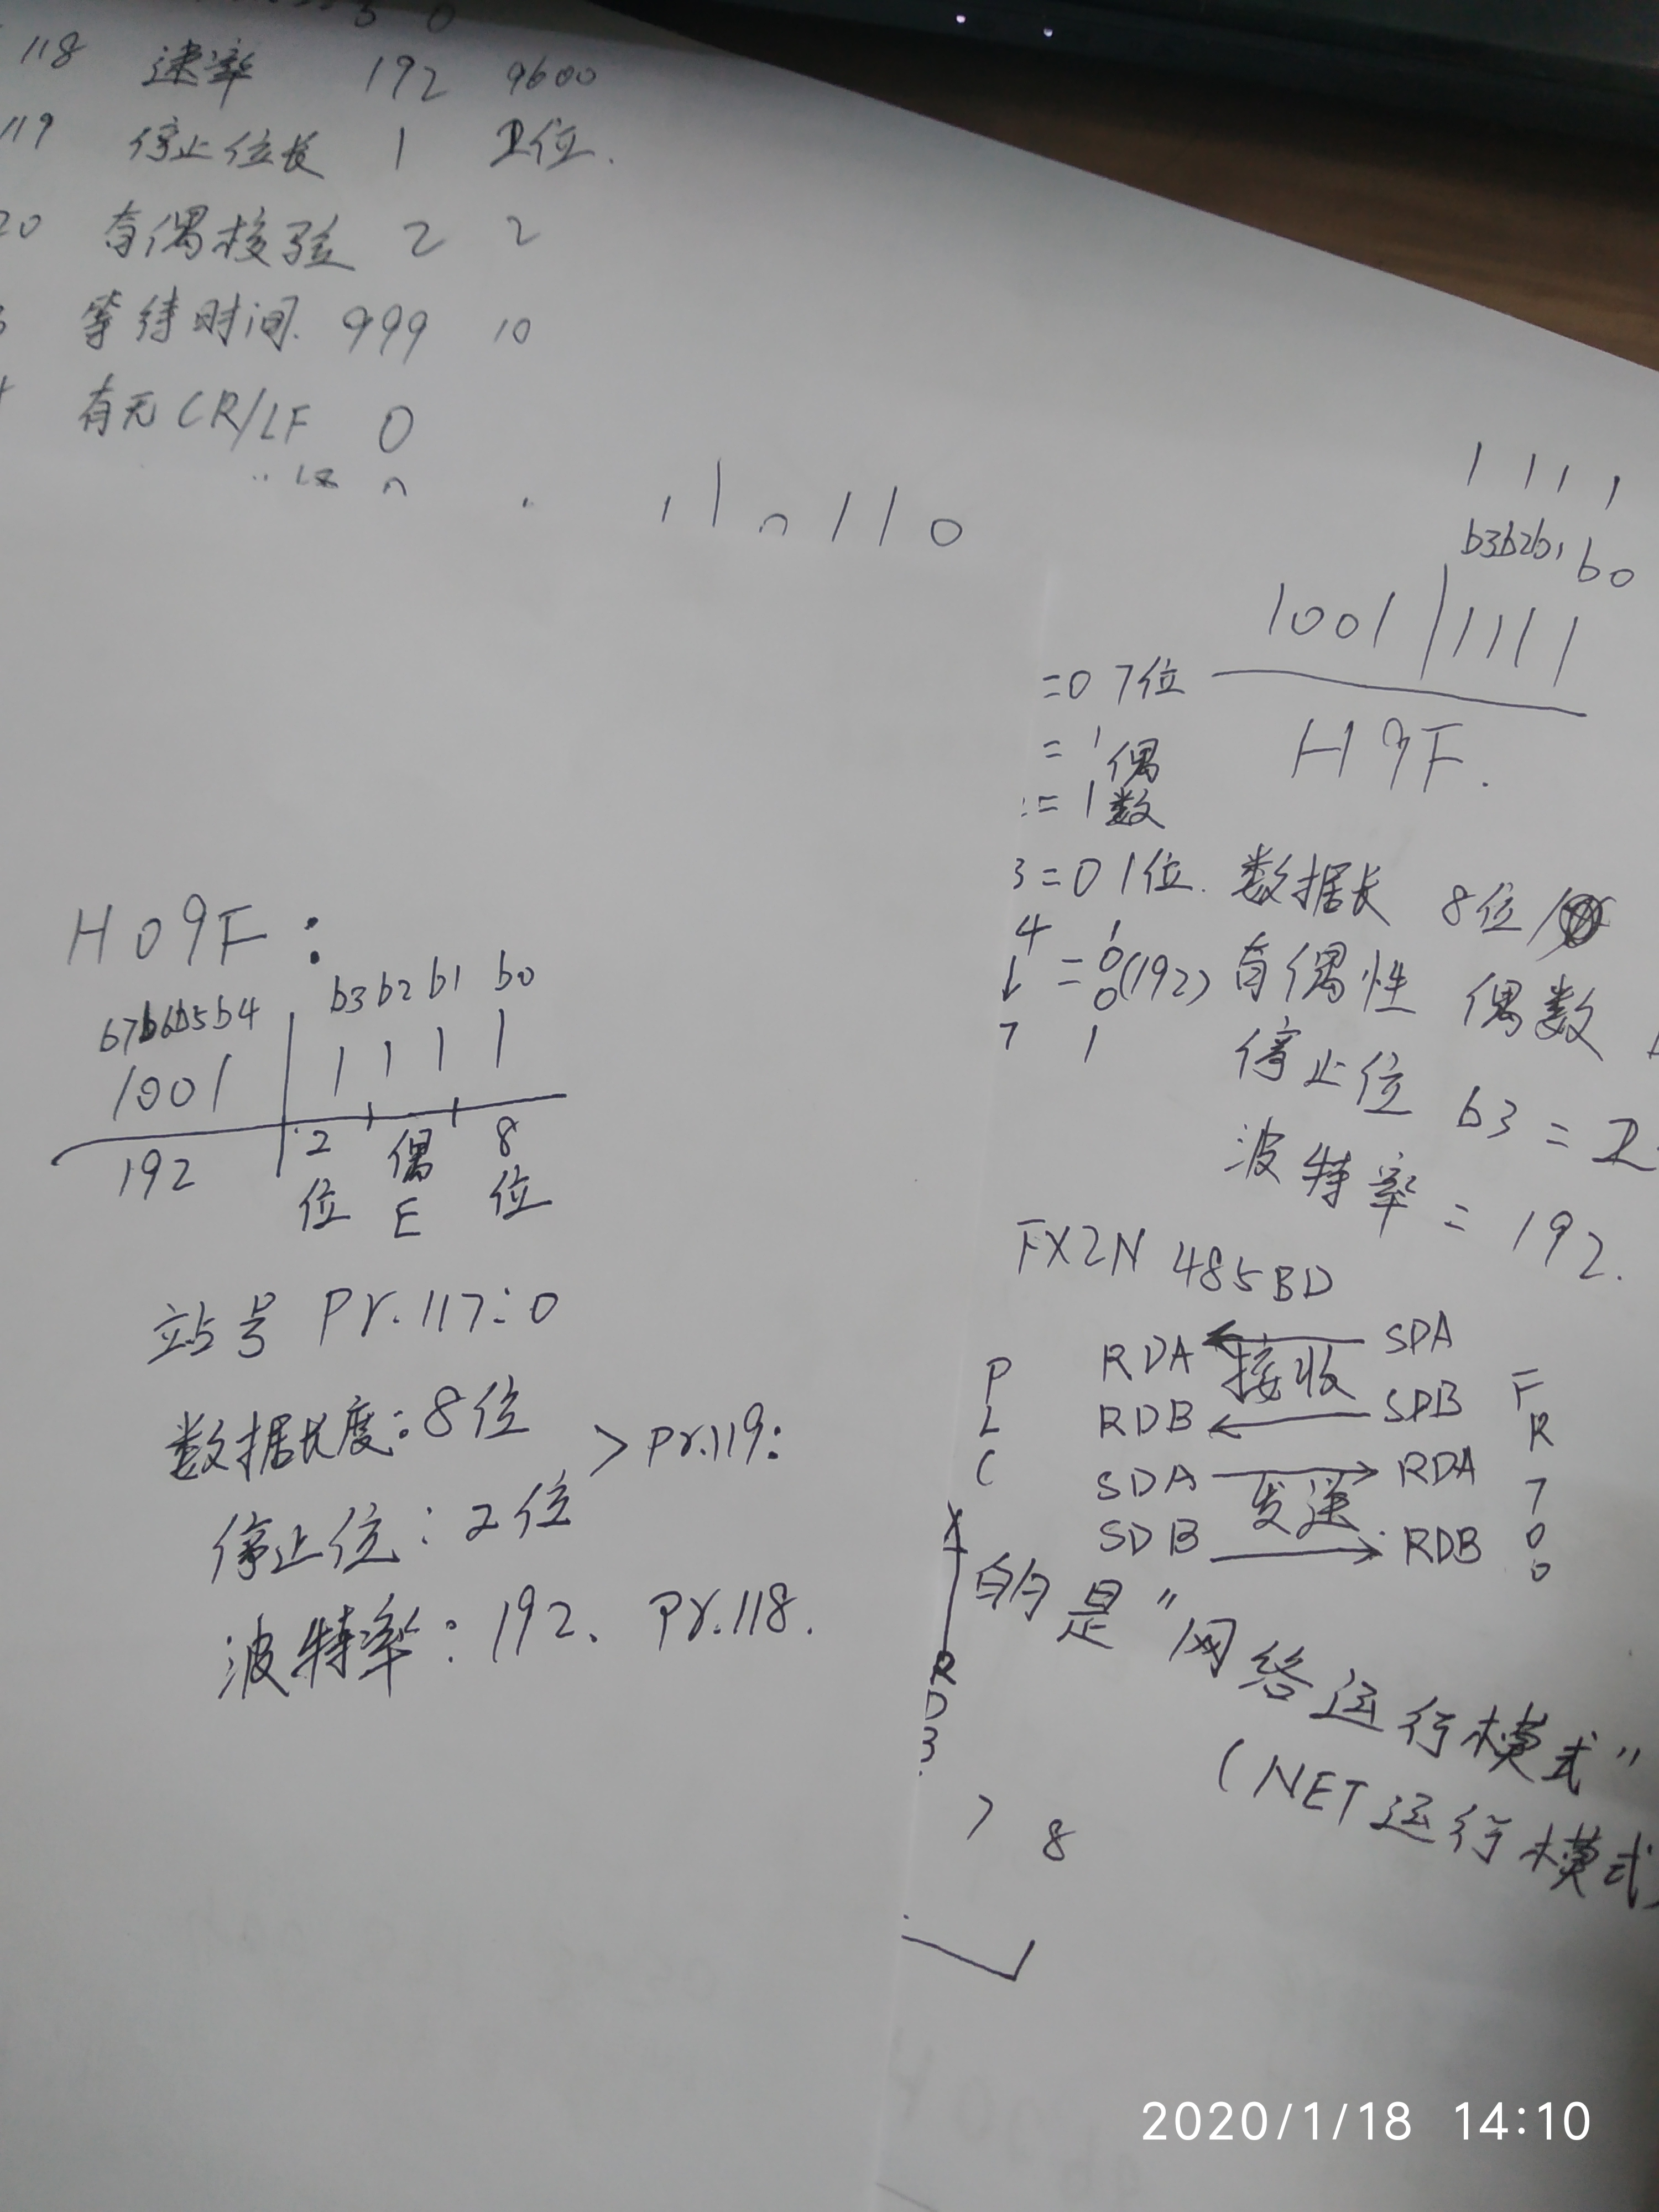 118 速率 192 9600
119 停止位长 1 2位.
20 奇偶校验 2 2
等待时间. 999 10
有无CR/LF 0
1 1 0
1 1 1 1
b3b2b1 b0
1001 1111
H9F.
=0 7位
=1 偶
=1 数
3=0 1位.
4 1
↓ = 0 (192)
0
7 1
数据长 8位/
奇偶性 偶数
停止位 b3=2
波特率=192.
H09F:
b7b6b5b4 b3b2b1 b0
1001 1 1 1 1
192 2位 偶E 8位
站号 Pr.117:0
数据长度:8位
停止位:2位 > Pr.119:
波特率:192、 Pr.118.
FX2N 485BD
PLC
RDA ← SDA
接收
RDB ← SDB
SDA → RDA
发送
SDB → RDB
FR700
的是"网络运行模式"
(NET运行模式)
R
D
3
7 8
2020/1/18 14:10